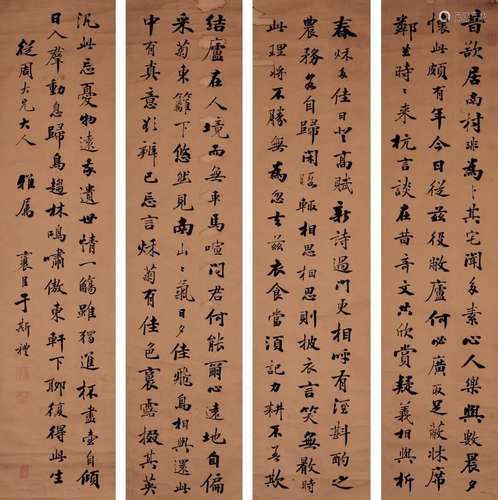 昔欲居南村非為卜其宅聞多素心人樂與數晨夕
懷此頗有年今日從茲役敝廬何必廣取足蔽牀席
鄰曲時〻來抗言談在昔奇文共欣賞疑義相與析
春穐多佳日登高賦新詩過門更相呼有酒斟酌之
農務各自歸閑暇輒相思相思則披衣言笑無厭時
此理將不勝無為忽去茲衣食當須記力耕不吾欺
結廬在人境而無車馬喧問君何能爾心遠地自偏
采菊東籬下悠然見南山〻氣日夕佳飛鳥相與還此
中有真意欲辨已忘言穐菊有佳色裛露掇其英
汎此忘憂物遠我遺世情一觴雖獨進杯盡壺自傾
日入羣動息歸鳥趨林鳴嘯傲東軒下聊復得此生
從周大兄大人 雅屬 襄臣于斯禮